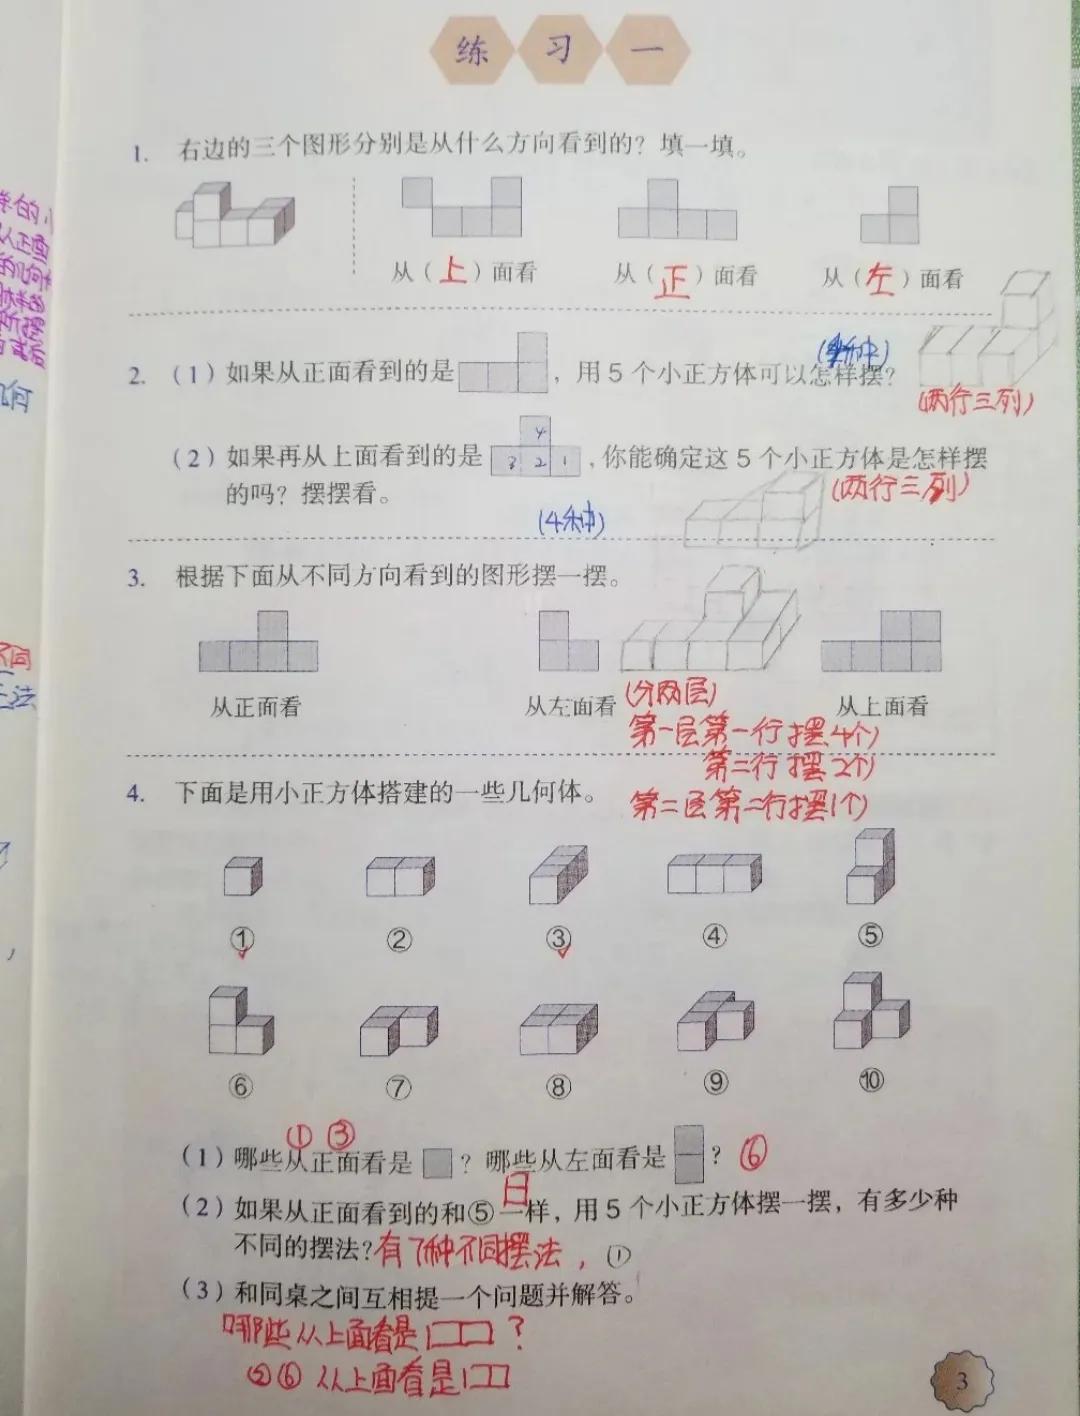 练习一
1. 右边的三个图形分别是从什么方向看到的？填一填。
从（上）面看 从（正）面看 从（左）面看
2.（1）如果从正面看到的是 ，用5个小正方体可以怎样摆？
(两行三列)
（2）如果再从上面看到的是 3 2 1 4 ，你能确定这5个小正方体是怎样摆
的吗？摆摆看。
(两行三列)
(4种)
3. 根据下面从不同方向看到的图形摆一摆。
从正面看 从左面看 从上面看
(分两层)
第一层第一行摆4个
第二行摆2个
第二层第二行摆1个
4. 下面是用小正方体搭建的一些几何体。
① ② ③ ④ ⑤
⑥ ⑦ ⑧ ⑨ ⑩
① ③
（1）哪些从正面看是 ？哪些从左面看是 ？ ⑥
（2）如果从正面看到的和⑤一样，用5个小正方体摆一摆，有多少种
不同的摆法？有7种不同摆法，①
（3）和同桌之间互相提一个问题并解答。
哪些从上面看是 ？
②⑥ 从上面看是
3